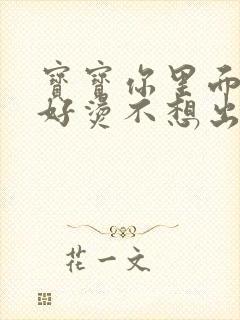 寶寶你里面
好燙不想出
花一文